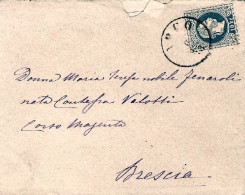 ARCO
Donna Maria Teresa nobile Fenaroli
nata Contessa Valotti
Corso Magenta
Brescia